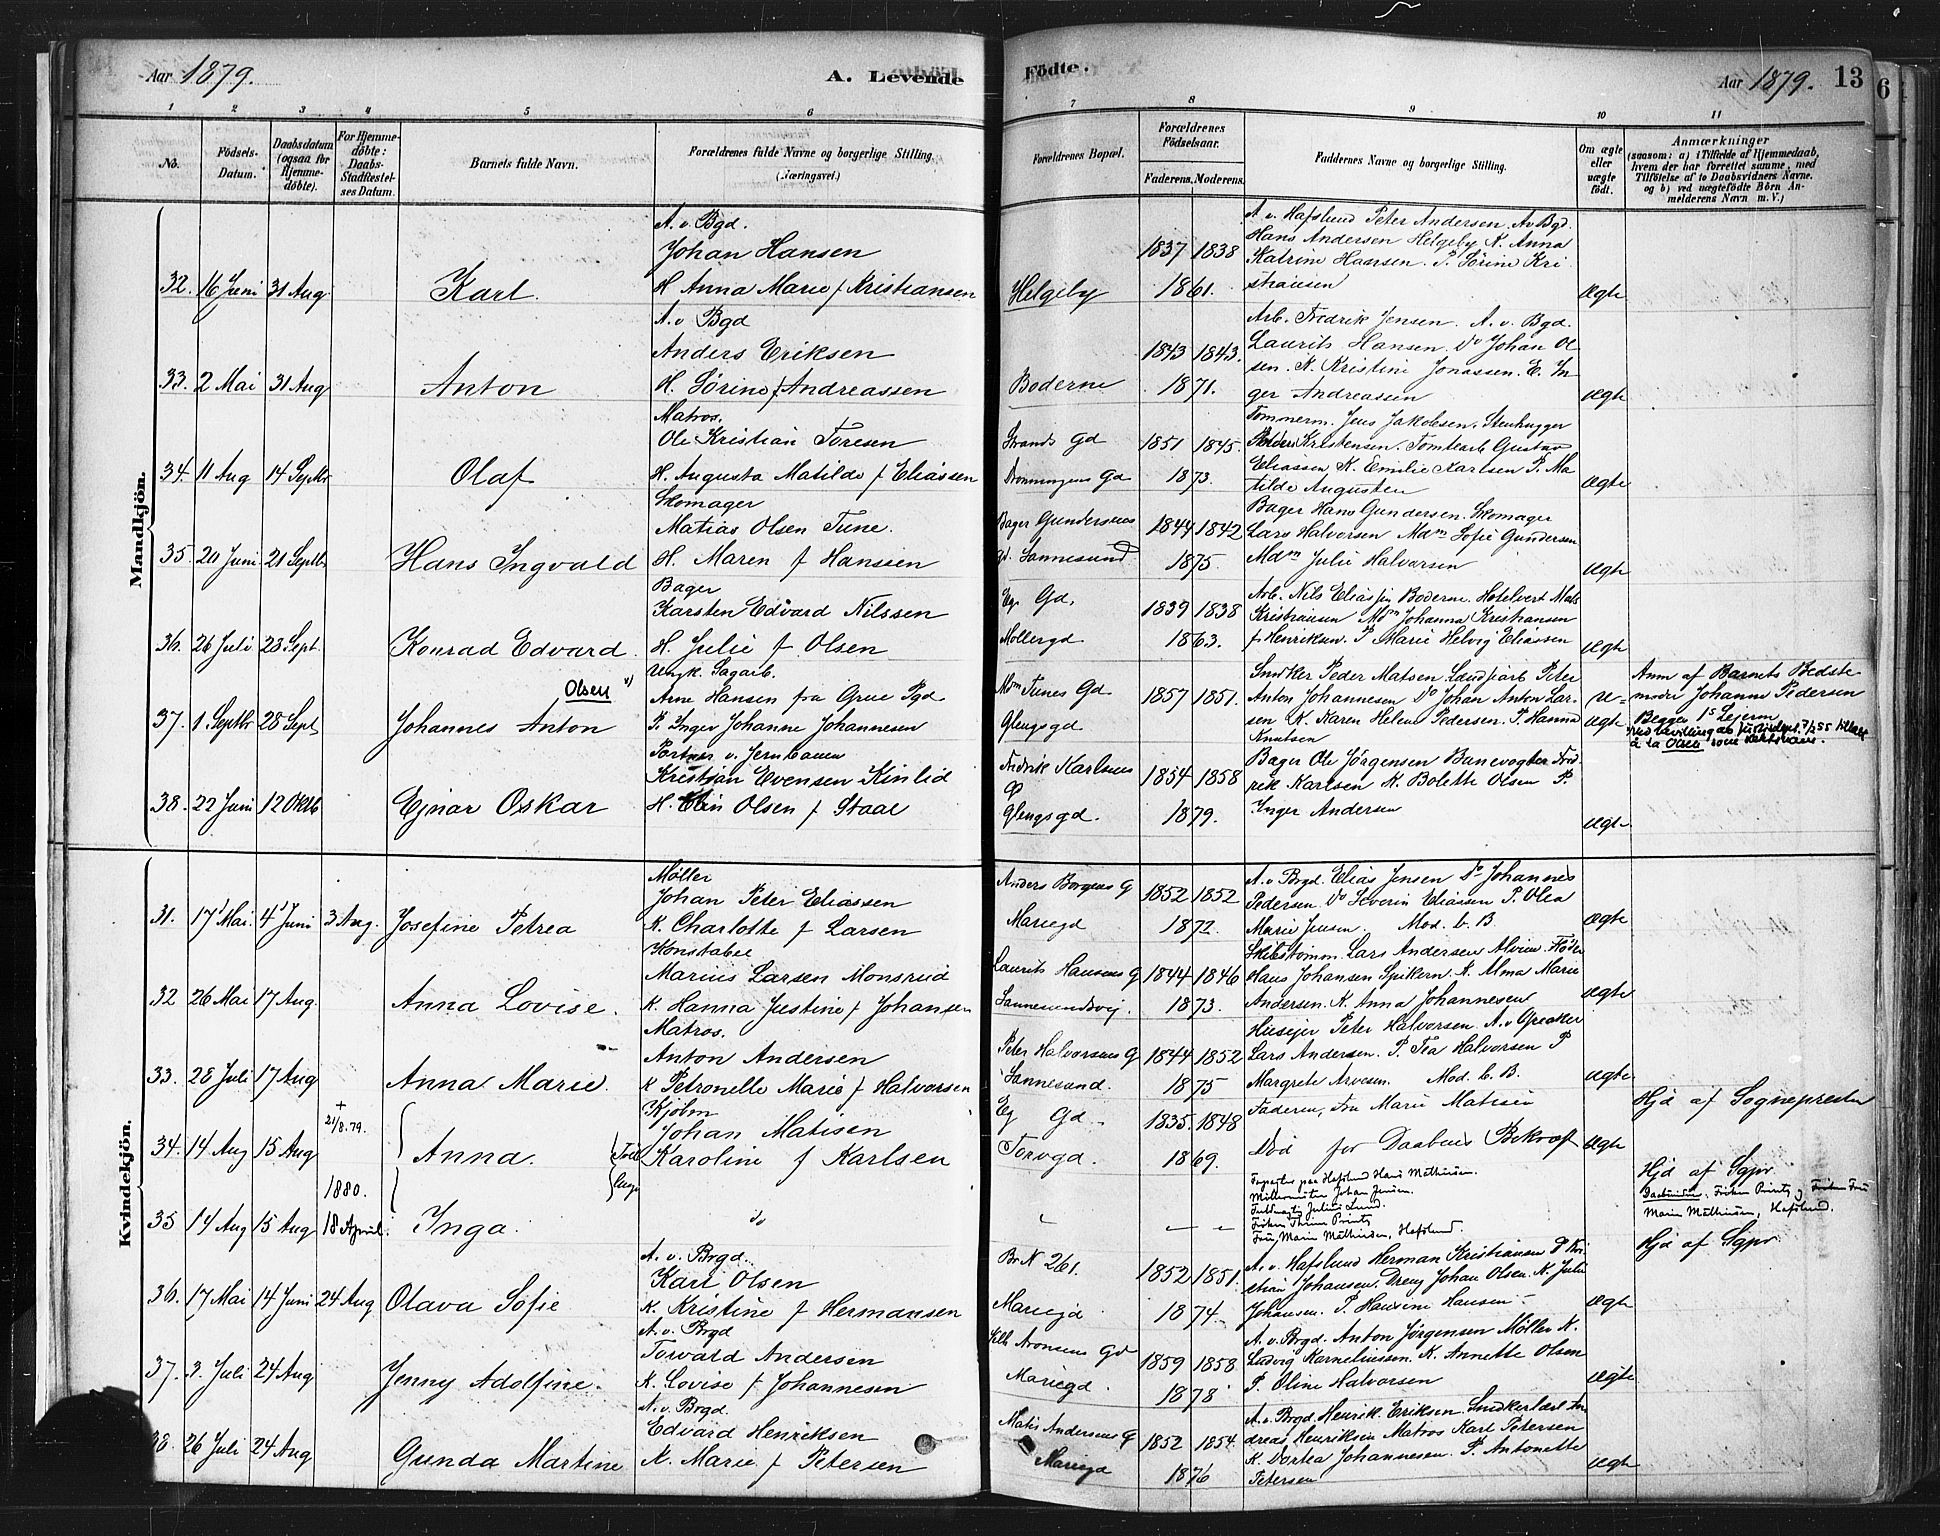 Aar 1879. A. Levende
1 2 3 4 5 6
No. Födsels-Datum. Daabsdatum (ogsaa for Hjemmedøbte). For Hjemmedøbte: Daabs-Stadfæstelses Datum. Barnets fulde Navn. Forældrenes fulde Navne og borgerlige Stilling. (Næringsvei.)
Mandkjön.
A. v. Bgd.
Johan Hansen
32. 16 Juni 31 Aug Karl. H Anna Marie f Kristiansen
A. v Bgd
Anders Eriksen
33. 2 Mai 31 Aug Anton H. Sørine f Andreassen
Matros.
Ole Kristian Toresen
34. 11 Aug 14 Septbr Olaf H. Augusta Matilde f Eliassen
Skomager
Matias Olsen Tune.
35. 20 Juni 21 Septbr Hans Ingvald H. Maren f Hanssen
Bager
Karsten Edvard Nilssen
36. 26 Juli 28 Sept. Konrad Edvard. H. Julie f Olsen
Ungk. Sagarb.
Olsen Arne Hansen fra Grue Pgd
37. 1. Septbr 28 Sept Johannes Anton P. Inger Johanne Johannesen
Portner v. Jernbanen
Kristian Evensen Kinlid
38. 22 Juni 12 Oktb Ejnar Oskar H. Elin Olsen f Staal
Kvindekjön.
Møller
Johan Peter Eliassen
31. 17 Mai 4 Juni 3 Aug. Josefine Petrea K. Charlotte f Larsen
Konstabel
Marius Larsen Monsrud
32 26 Mai 17 Aug. Anna Lovise. K. Hanna Justine f Johansen
Matros.
Anton Andersen
33. 28 Juli 17 Aug Anna Marie. K Petronelle Marie f Halvorsen
+ 21/8.79. Kjøbm
Johan Matisen
34. 14 Aug 15 Aug Anna. Karoline f Karlsen
1880.
35 14 Aug 15 Aug 18 April. Inga. do
A. v. Brgd.
Karl Olsen
36. 17 Mai 14 Juni 24 Aug Olava Sofie K. Kristine f Hermansen
A. v. Brgd
Torvard Andersen
37. 3. Juli 24 Aug Jenny Adolfine. K. Lovise f Johannesen
A. v. Brgd.
Edvard Henriksen
38. 26 Juli 24 Aug Gunda Martine K. Marie f Petersen
Födte. Aar 1879. 13
6
7 8 9 10 11
Forældrenes Bopæl. Forældrenes Födselsaar. Faderens. Moderens. Faddernes Navne og borgerlige Stilling. Om ægte eller uægte födt. Anmærkninger (saasom: a) i Tilfælde af Hjemmedaab, hvem der har forrettet samme, med Tilföielse af to Daabsvidners Navne. og b) ved uægtefödte Börn Anmelderens Navn m. V.)
A. v. Hafslund Peter Andersen. A v Bgd.
1837 1838 Hans Andersen Helgeby K. Anna
Katrine Hansen. P. Sørine Kri
Helgeby 1861. stiansen Ægte
Arb. Fredrik Jensen. A. v. Bgd.
1843 1843. Laurits Hansen. Do Johan Ol
sen. K. Kristine Jonassen. E. In
Boderne 1871. ger Andreassen Ægte
Tømmerm. Jens Jakobsen. Stenhugger
Strands Gd 1851 1845. Kristensen. Tomtearb Gustav
Dronningens Gd 1873. Eliassen K. Emilie Karlsen P. Ma
tilde Augusten Ægte
Bager Gundersens 1844 1842 Bager Hans Gundersen. Skomager
Lars Halvorsen Mdm Sofie Gundersen
gd. Sannesund 1875. Mdm Julie Halvorsen Ægte
Eg. Gd. 1839 1838 Arb. Nils Eliassen Boderne. Hotelvert Mats
Kristiansen Mdm Johanna Kristiansen
Møllergd 1863. f Henriksen. P Marie Helvig Eliassen Ægte
Mdm Tunes Gd 1857 1851. Snedker Peder Matsen. Peter
Anton Johannesen Do Johan Anton Lar-
Glengsgd sen K. Karen Helene Pedersen. P. Hanna
Knutsen U-ægte
Anm af Barnets Bedste
moder Johanne Pedersen
Begges 1s Lejerm
å ta Olsen som slektsnavn.
Fredrik Karlsens 1854 1858 Bager Ole Jørgensen Banevogter Fred
G rik Karlsen K. Bolette Olsen P.
Glengsgd. 1879. Inger Andersen Ægte
Anders Borgens G 1852 1852 A. v Brgd. Elias Jensen Do Johannes
Pedersen Do Severin Eliassen P. Olea
Mariegd 1872. Marie Jensen. Mod. t. B Ægte
Laurits Hansens G 1844 1846 Skibstømm. Lars Andersen
Hans Johansen Spikern. K. Alma Marie
Sannesundsvej. 1873. Andersen. K. Anna Johannesen Ægte
Husejer Peter Halvorsen. A. v Greaker
Peter Halvorsens G 1844 1852 Lars Andersen. P. Tea Halvorsen P
Sannesund. 1875 Margrete Arvesen. Mod. t. B. Ægte
Eg Gd. 1835. 1848 Faderen, Fru Marie Matisen Hjd af Sognepresten
Torvgd. 1869. Død før Daabens Bekræft Ægte
Hans Mathiesen.
Johan Jensen.
Julius Lund.
Fru Marie Mathiesen, Hafslund.
Hjd af Sgpr
Marie Mathiesen, Hafslund.
Hjd af Sgpr
Br N 261. 1852 1851. A. v. Hafslund Herman Kristiansen P Kri
stian Johansen. Dreng Johan Olsen. K. Julie
Mariegd 1874. Johansen. P. Hansine Hansen Ægte
Aronsens Gd 1859 1858 A. v. Brgd. Anton Jørgensen Møller K.
Ludvig Korneliussen. K. Annette Olsen
Mariegd. 1878 P. Oline Halvorsen Ægte
Matis Andersens G 1852 1854. A. v. Brgd. Henrik Eriksen. Snedkerlærl An
dreas Henriksen Matros Karl Petersen
Mariegd 1876 K. Dortea Johannesen. P. Antonette
Petersen Ægte